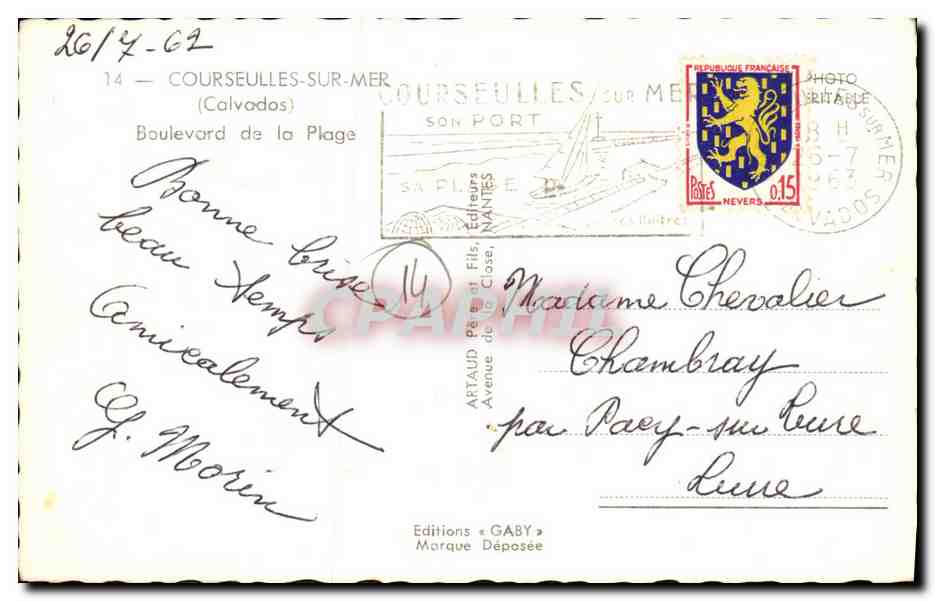 26/7-62
14 — COURSEULLES-SUR-MER
(Calvados)
Boulevard de la Plage
COURSEULLES SUR MER
SON PORT
SA PLAGE
REPUBLIQUE FRANÇAISE
POSTES
0,15
NEVERS
PHOTO
VERITABLE
SUR MER
8 H
-7
CALVADOS
Bonne brise
beau temps
Amicalement
G. Morin
14
ARTAUD Père et Fils, Editeurs
Avenue de la Close, NANTES
CPARPHIL
Madame Chevalier
Chambray
par Pacy-sur Eure
Eure
Editions « GABY »
Marque Déposée